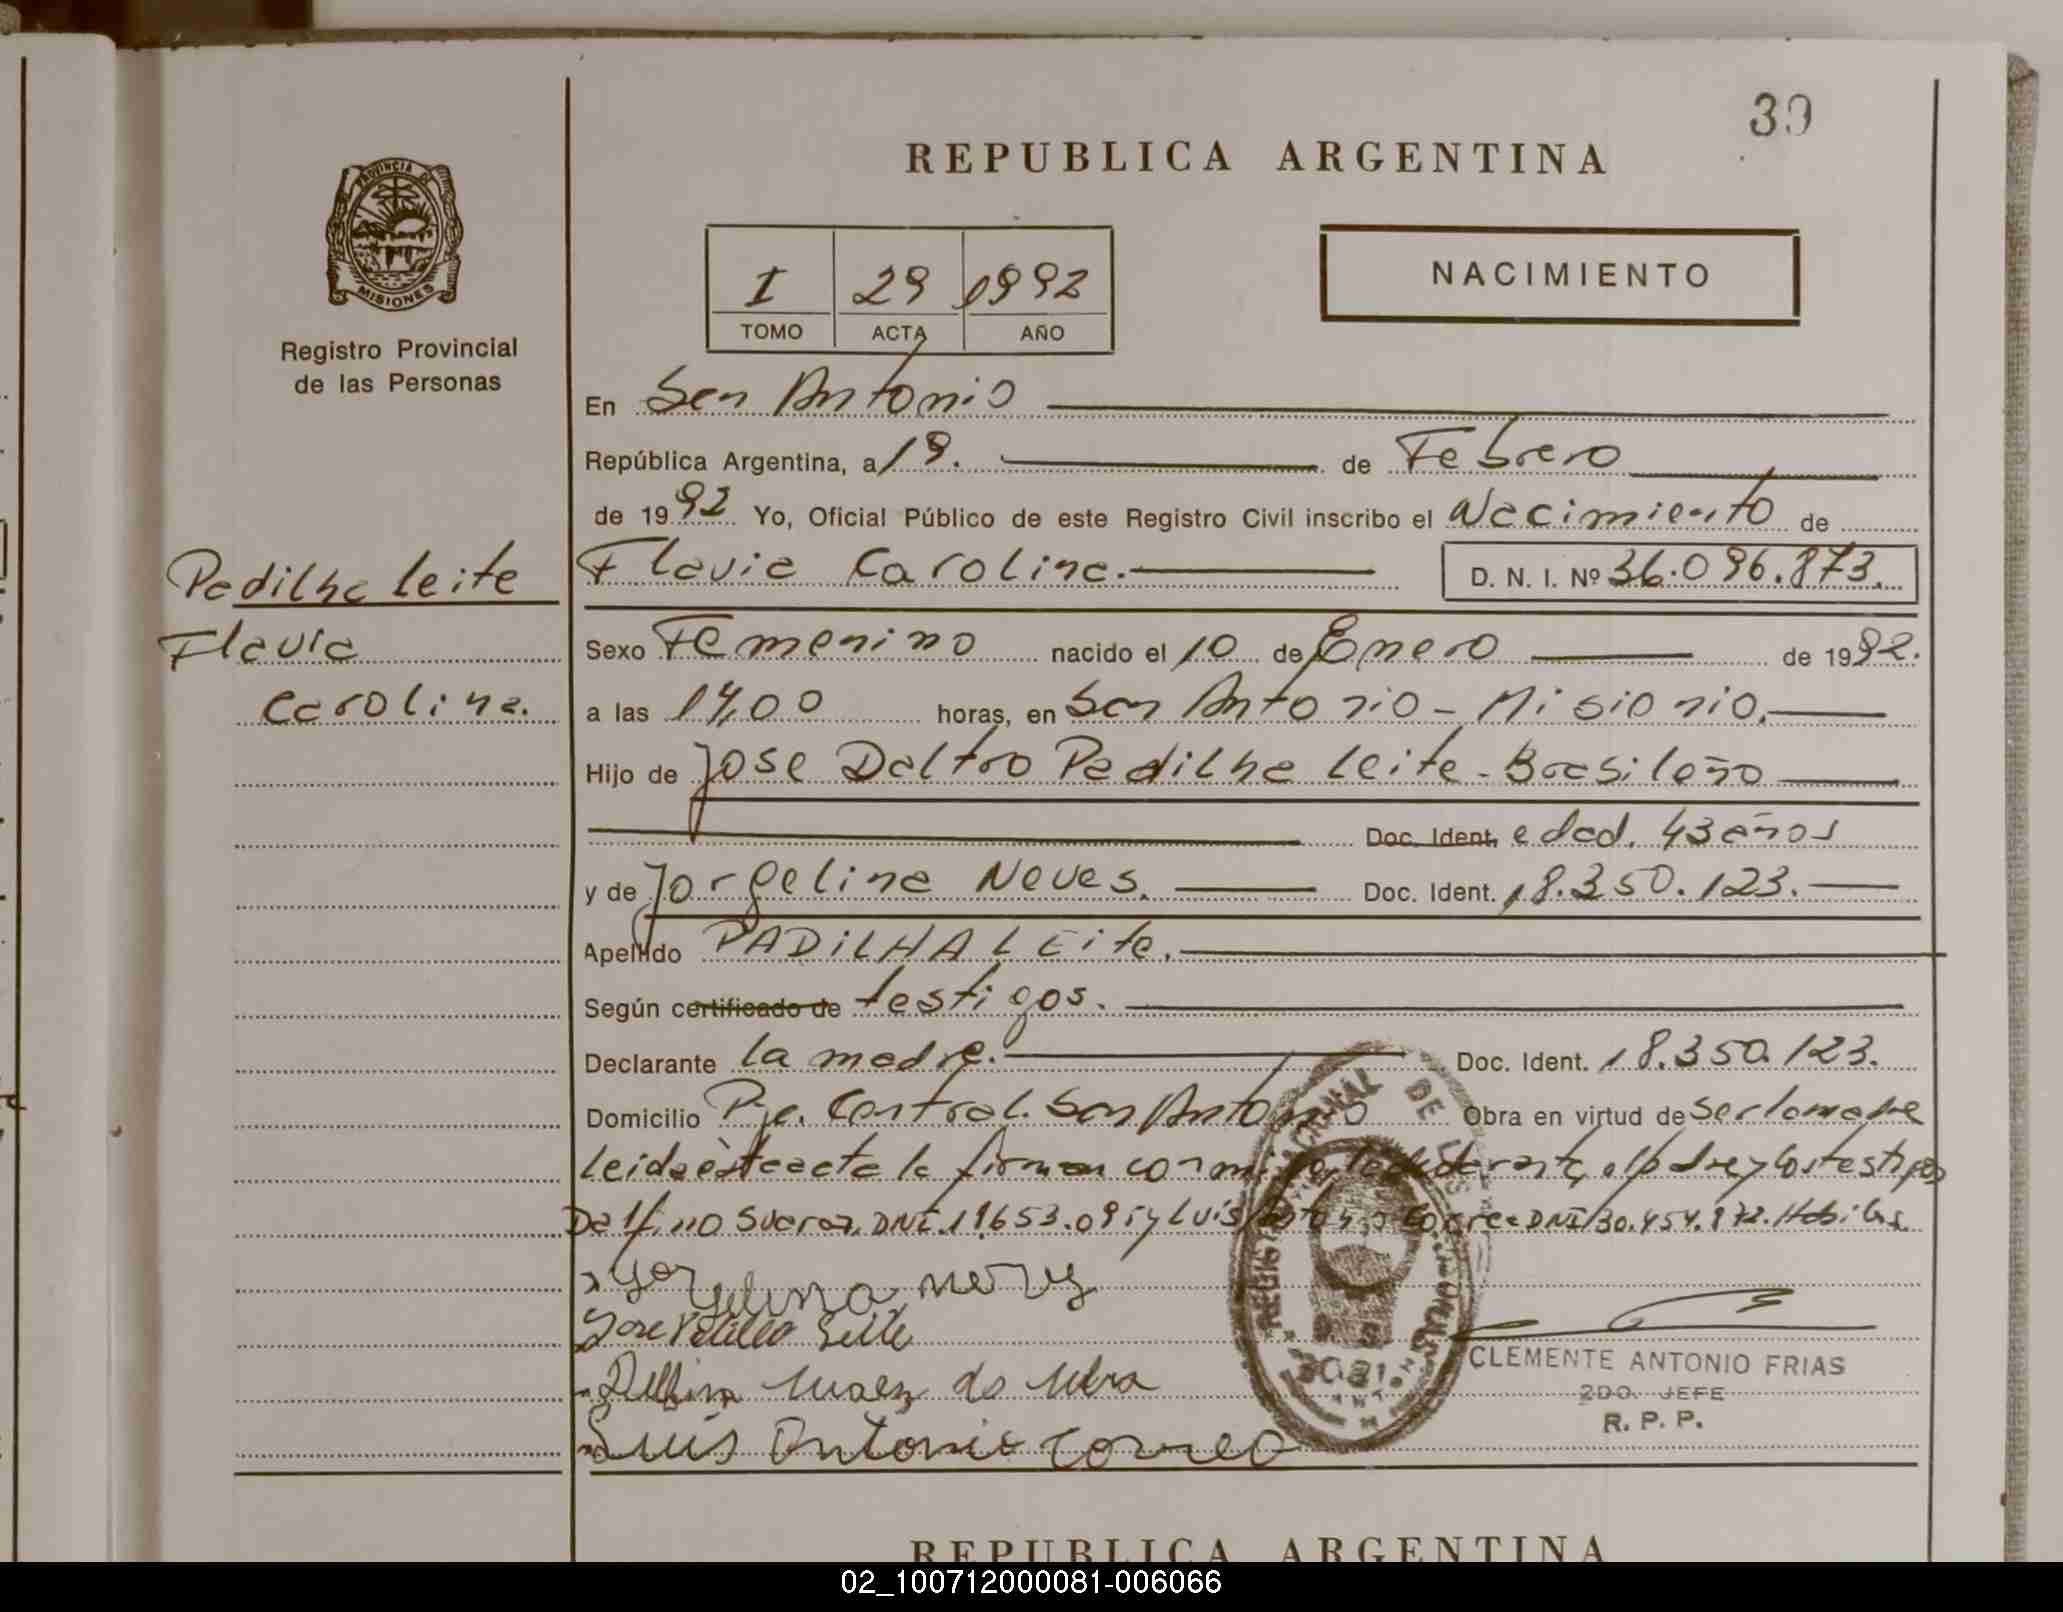 39
REPUBLICA ARGENTINA
PROVINCIA DE
MISIONES
Registro Provincial
de las Personas
NACIMIENTO
I 29 1992
TOMO ACTA AÑO
En San Antonio
República Argentina, a 19. de Febrero
de 1992 Yo, Oficial Público de este Registro Civil inscribo el Nacimiento de
Padilha Leite
Flavia Carolina. D. N. I. Nº 36.096.873.
Flavia
Sexo Femenino nacido el 10 de Enero de 1992.
Carolina.
a las 17,00 horas, en San Antonio - Misionio.
Hijo de Jose Daltro Padilha Leite - Brasileño
Doc. Ident. edad. 43 años
y de Jorgelina Neves. Doc. Ident. 18.350.123.
Apellido PADILHA LEite.
Según certificado de testigos.
Declarante la madre. Doc. Ident. 18.350.123.
Domicilio Pje. Central. San Antonio Obra en virtud de ser la madre
Leida ésta acta la firman con migo la declarante, el padre y los testigos
Delfino Suarez, DNI. y Luis Antonio Correa DNI 30.454.972. Habiles
Jorgelina neves
Jose Padilha Leite
Luis Antonio Correa
CLEMENTE ANTONIO FRIAS
2DO. JEFE
R. P. P.
REPUBLICA ARGENTINA
02_100712000081-006066